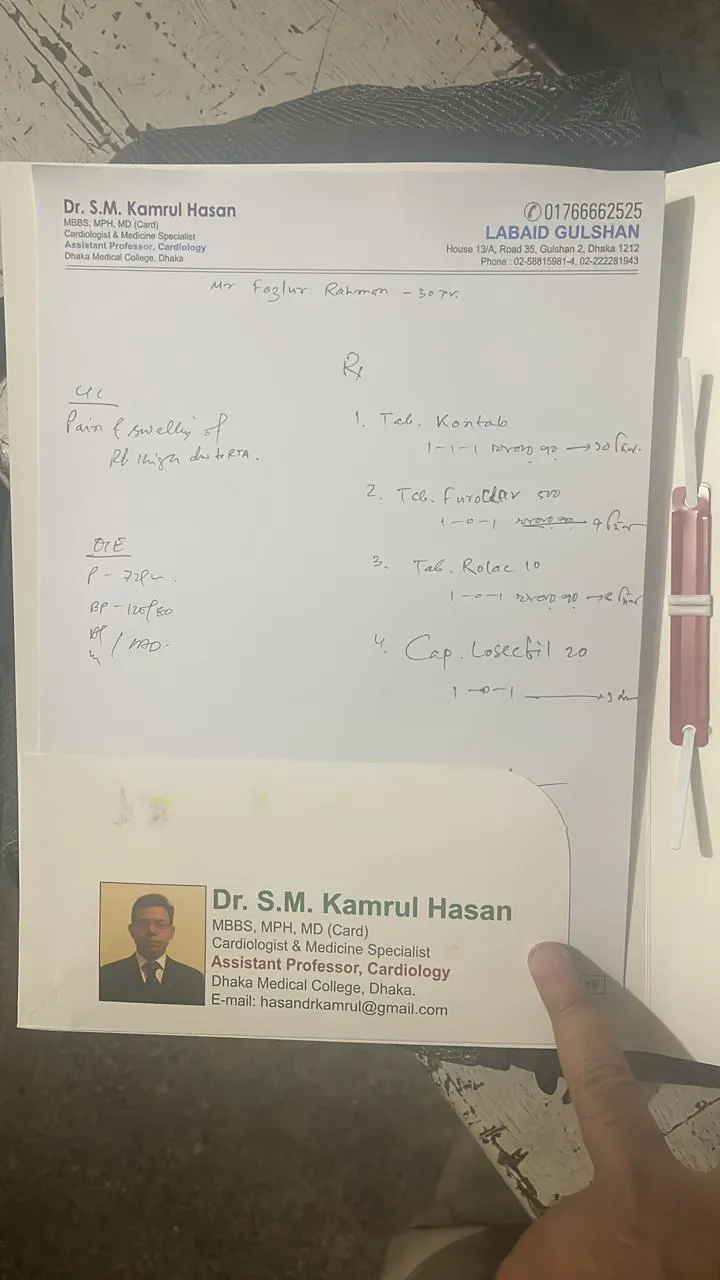 Dr. S.M. Kamrul Hasan
MBBS, MPH, MD (Card)
Cardiologist & Medicine Specialist
Assistant Professor, Cardiology
Dhaka Medical College, Dhaka
01766662525
LABAID GULSHAN
House 13/A, Road 35, Gulshan 2, Dhaka 1212
Phone : 02-58815981-4, 02-222281943
Mr Fazlur Rahman - 30 yr.
Pain & swelling of
Rt thigh due to RTA.
O/E
P - 72
BP - 120/80
Rx
1. Tab. Kontab
1-1-1 → ১০ দিন
2. Tab. Furoclav 500
1-0-1 ৭ দিন
3. Tab. Rolac 10
1-0-1 দিন
4. Cap. Losectil 20
1-0-1
Dr. S.M. Kamrul Hasan
MBBS, MPH, MD (Card)
Cardiologist & Medicine Specialist
Assistant Professor, Cardiology
Dhaka Medical College, Dhaka.
E-mail: hasandrkamrul@gmail.com